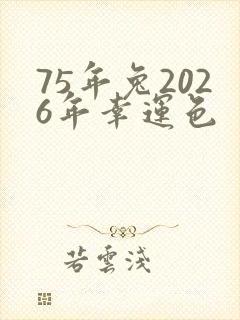 75年兔202
6年幸運色
若雲淺